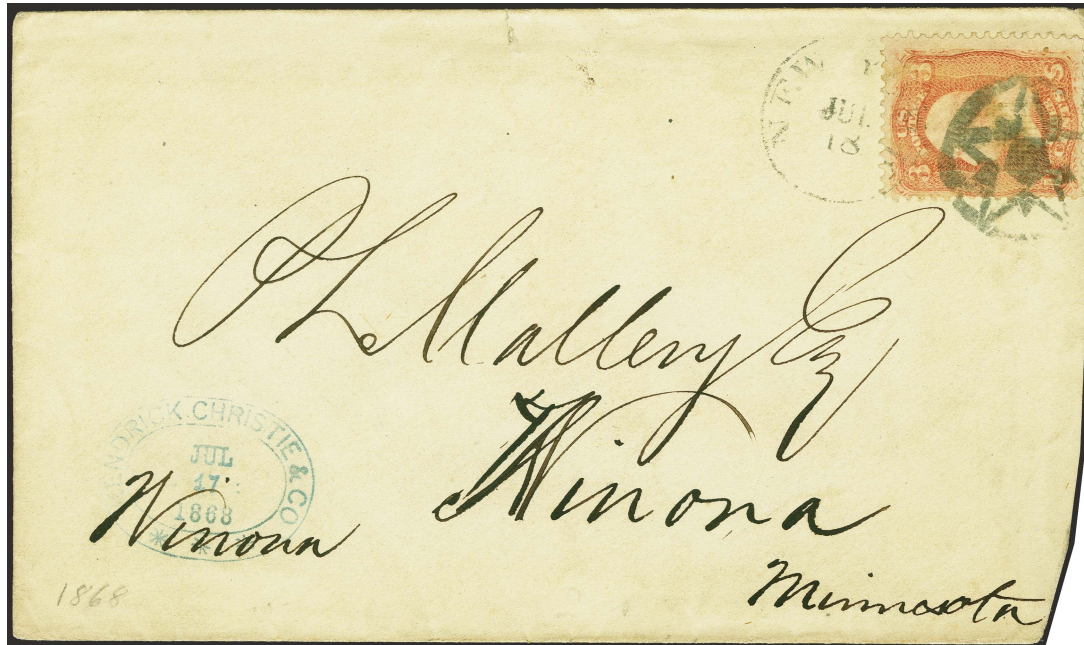 NEW Y
JUL
18
3 3
U.S. POSTAGE
CENTS
P L Mallery Esq
Winona
Minnesota
NDRICK. CHRISTIE & CO
JUL
17
1868
Winona
1868